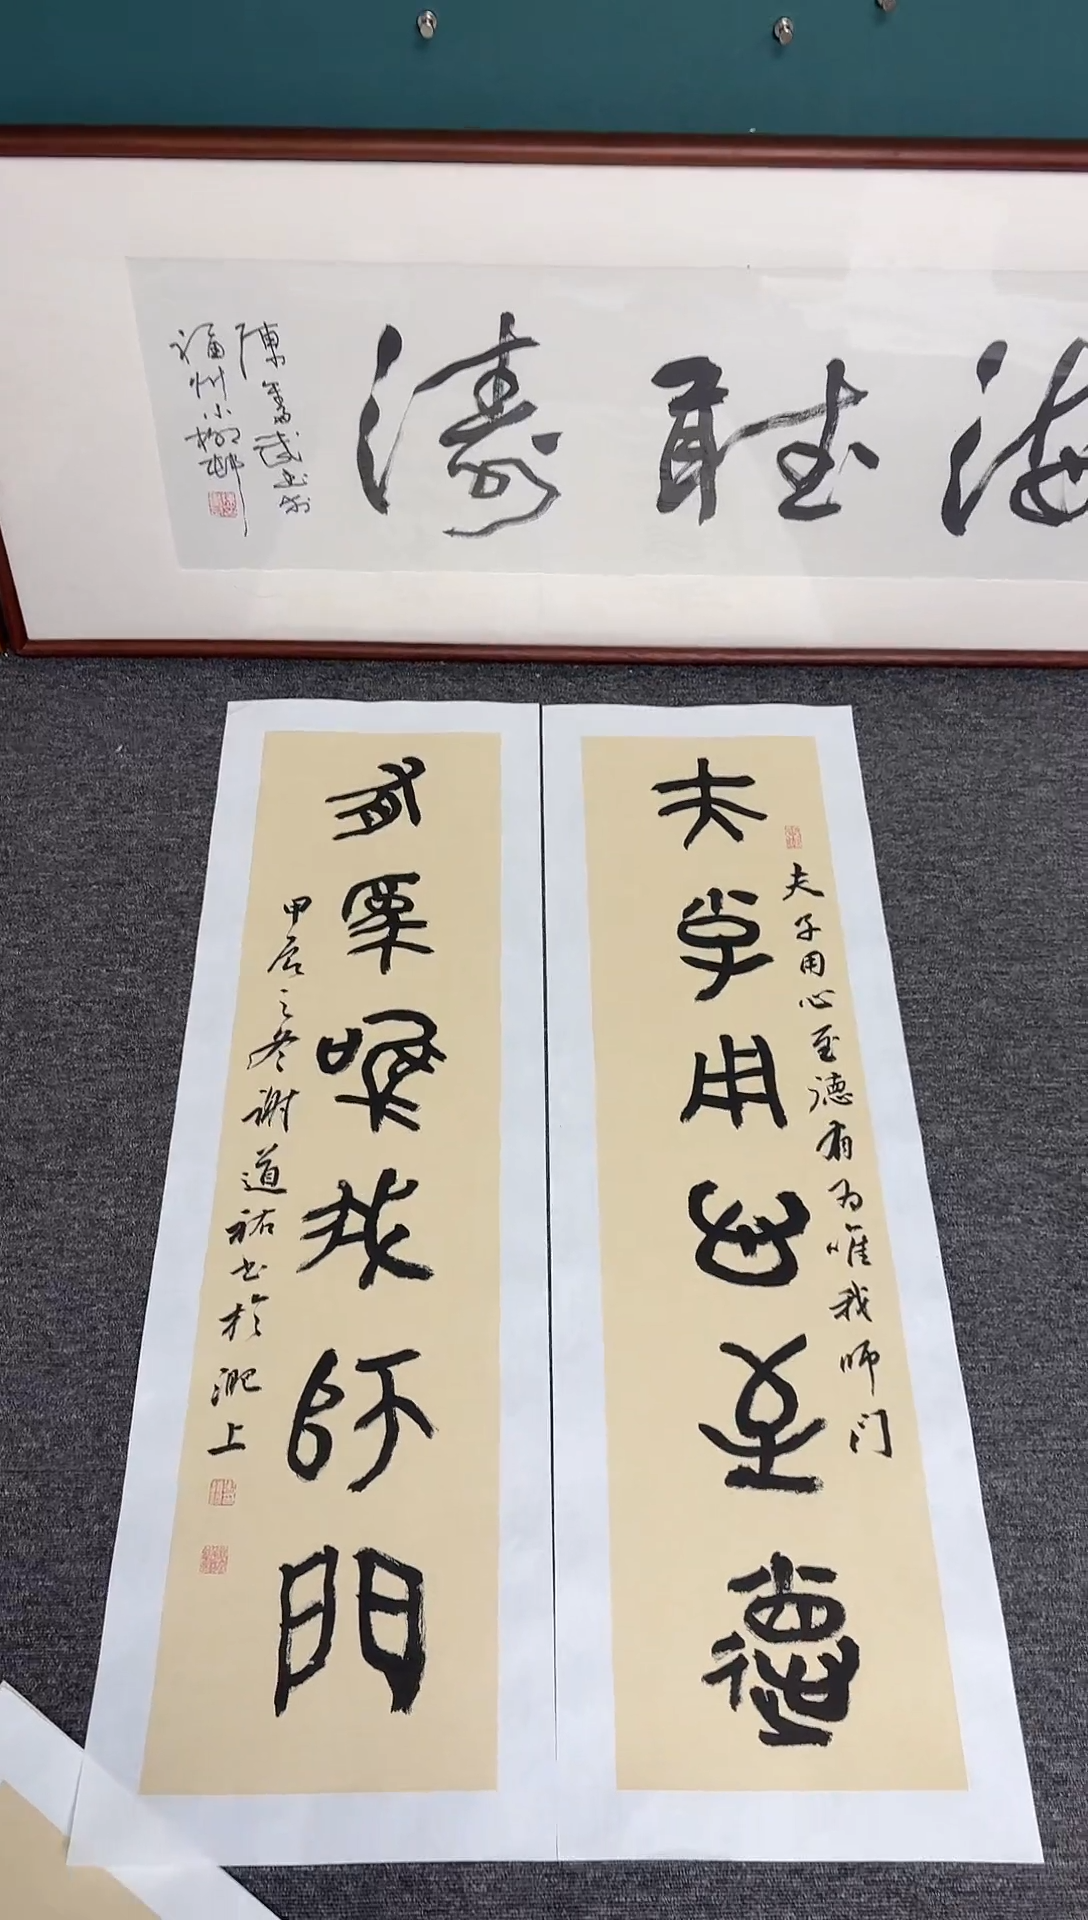 海聽濤
陳奮武书於
福州小柳邨
夫子用心至德
夫子用心至德有为唯我师门
有為唯我師門
甲辰之冬谢道祐书於淝上